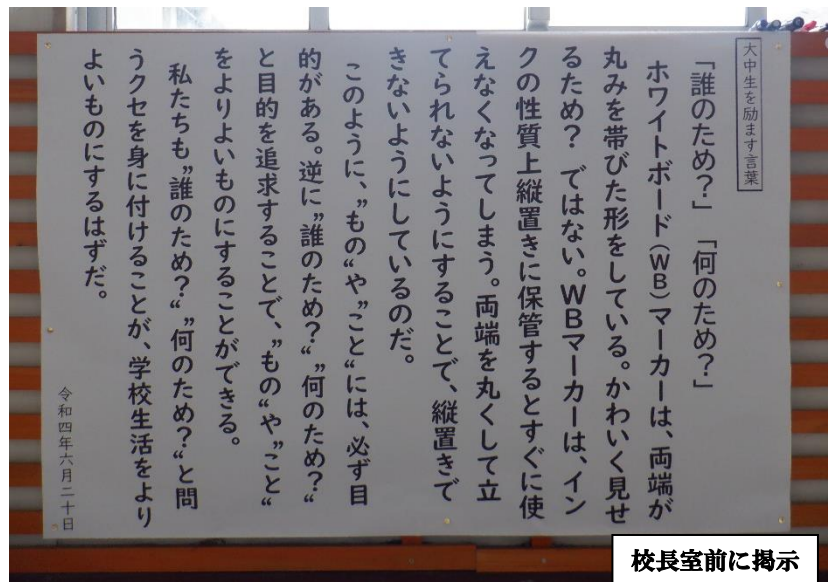 大中生を励ます言葉
「誰のため？」「何のため？」
ホワイトボード（WB）マーカーは、両端が
丸みを帯びた形をしている。かわいく見せ
るため？ ではない。WBマーカーは、イン
クの性質上縦置きに保管するとすぐに使
えなくなってしまう。両端を丸くして立
てられないようにすることで、縦置きで
きないようにしているのだ。
このように、”もの“や”こと“には、必ず目
的がある。逆に”誰のため？“”何のため？“
と目的を追求することで、”もの“や”こと“
をよりよいものにすることができる。
私たちも”誰のため？“”何のため？“と問
うクセを身に付けることが、学校生活をより
よいものにするはずだ。
令和四年六月二十日
校長室前に掲示